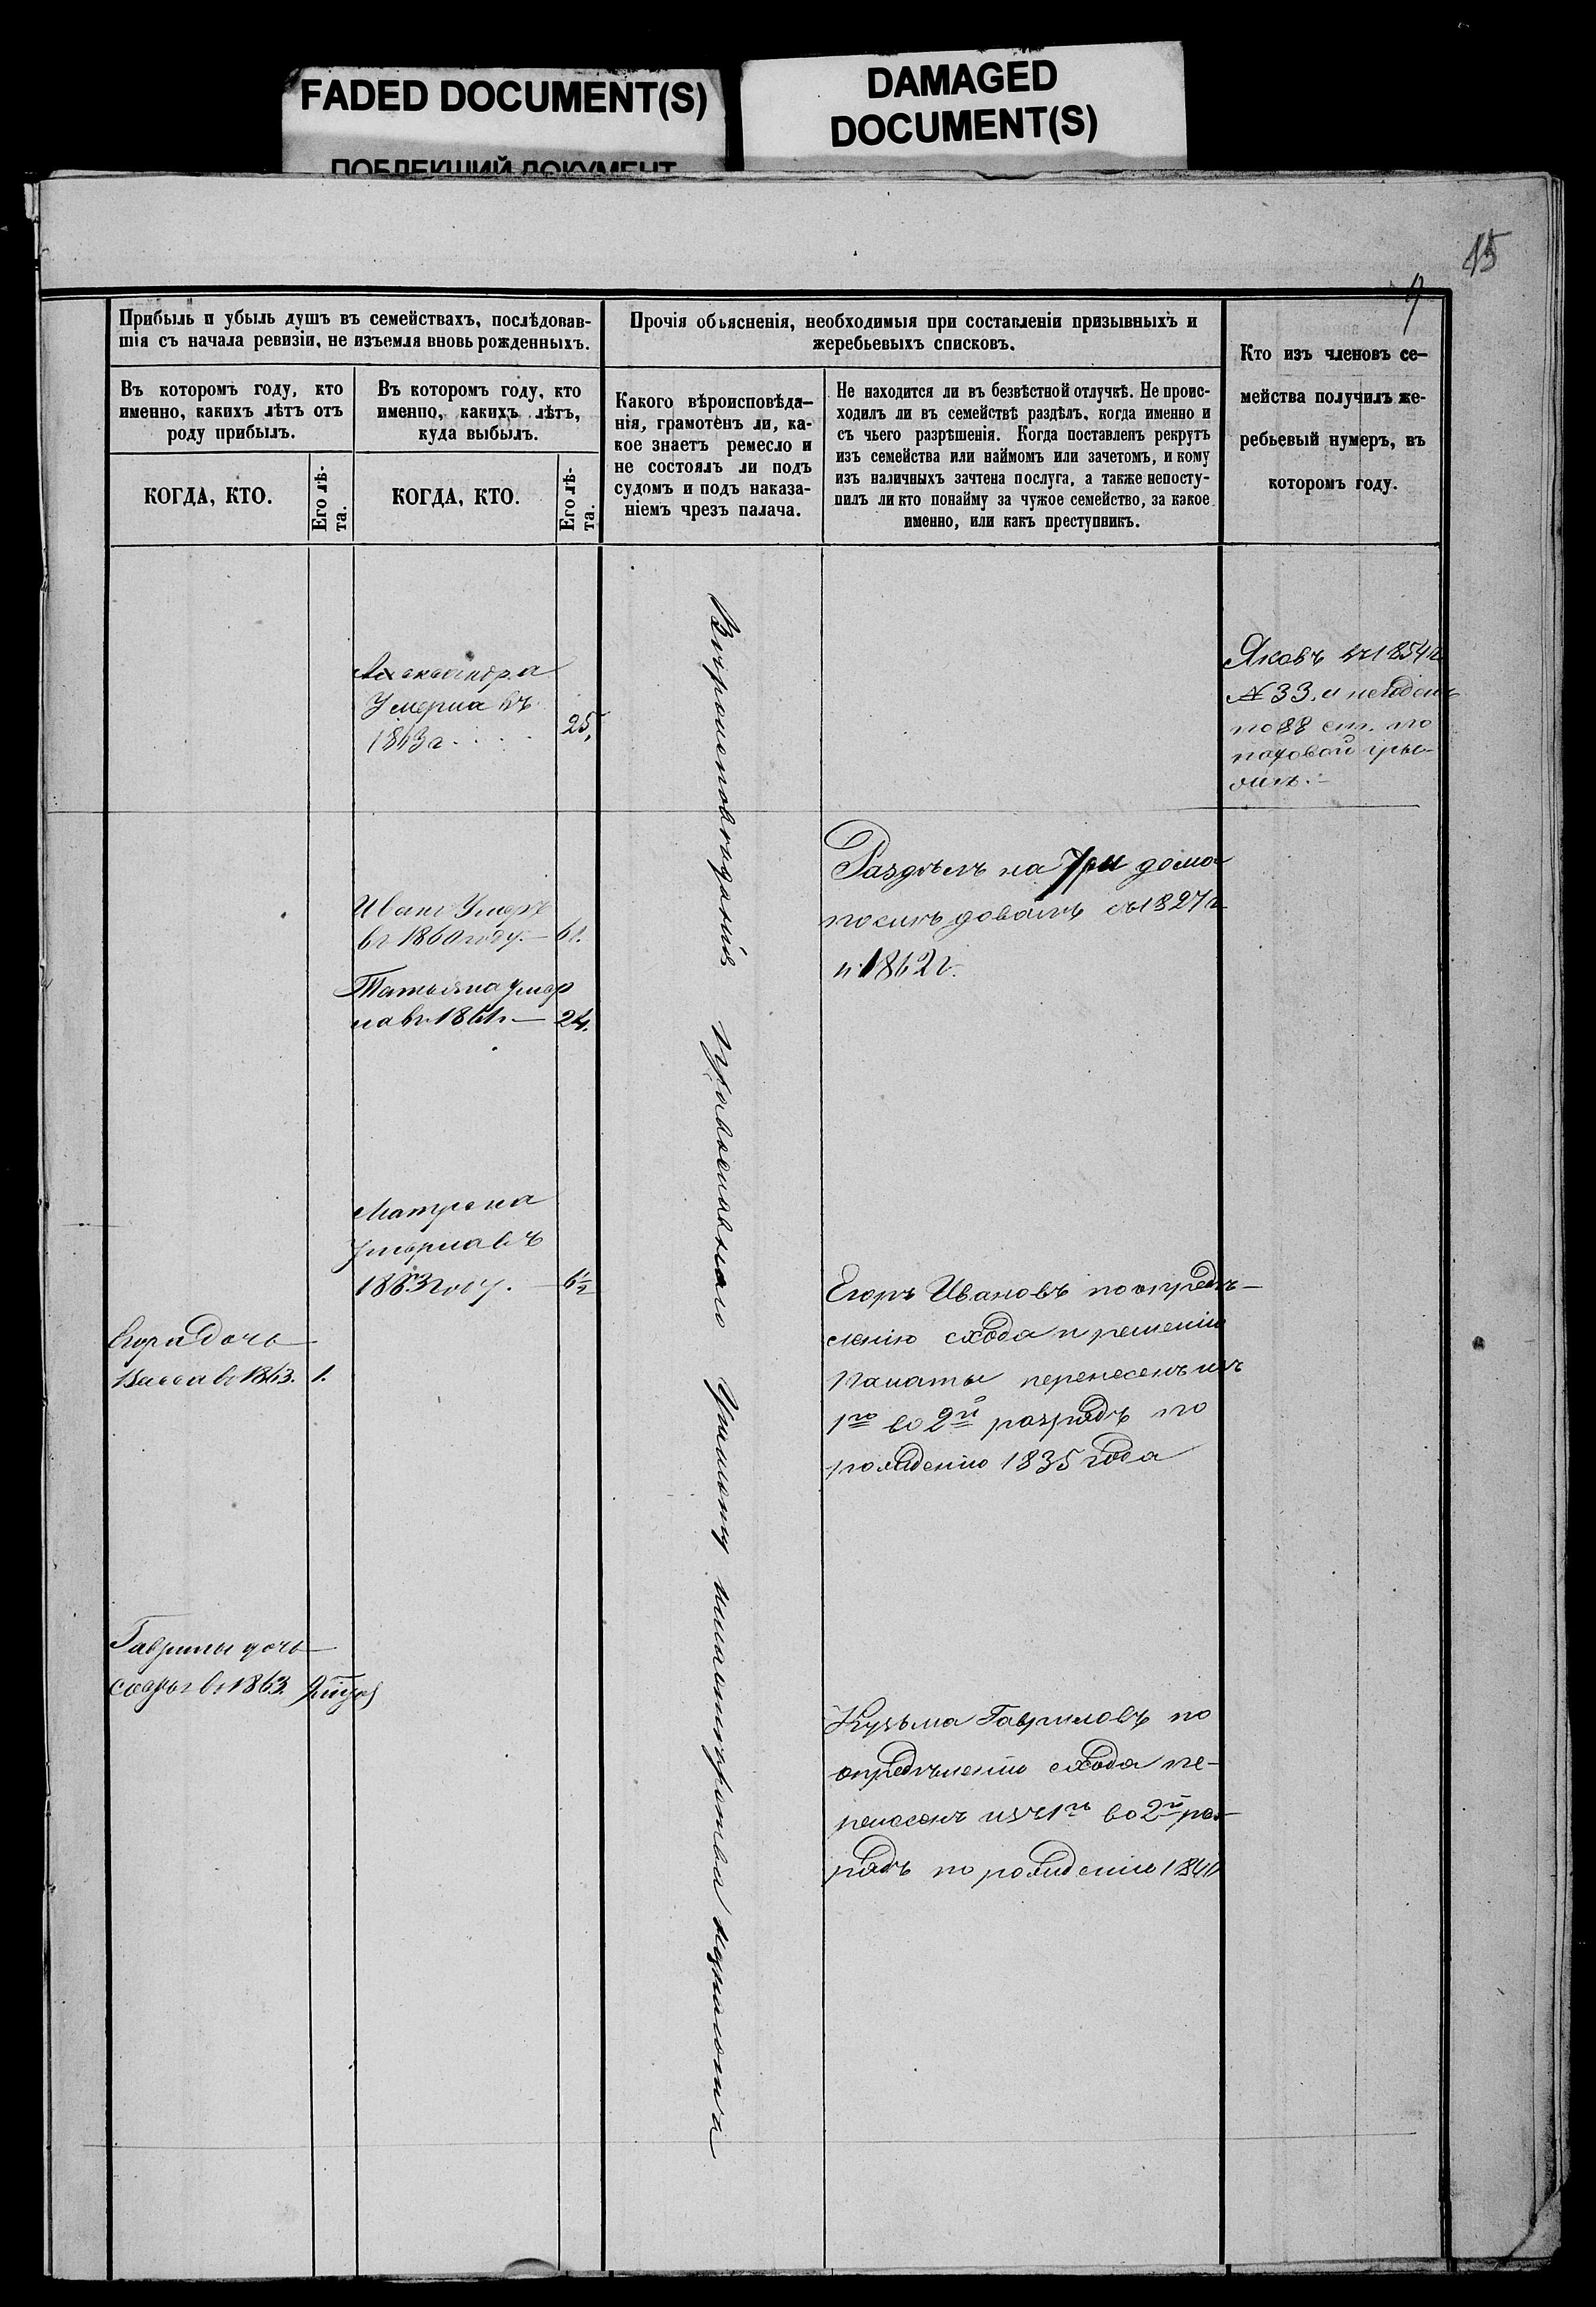 FADED DOCUMENT(S)
ПОБЛЕКШИЙ ДОКУМЕНТ
DAMAGED
DOCUMENT(S)
15
9
Прибыль и убыль душъ въ семействахъ, послѣдовав-
шія съ начала ревизіи, не изъемля вновь рожденныхъ.
Въ которомъ году, кто
именно, какихъ лѣтъ отъ
роду прибылъ.
КОГДА, КТО.
Его лѣ-
та.
Въ которомъ году, кто
именно, какихъ лѣтъ,
куда выбылъ.
КОГДА, КТО.
Его лѣ-
та.
Прочія объясненія, необходимыя при составленіи призывныхъ и
жеребьевыхъ списковъ.
Какого вѣроисповѣда-
нія, грамотенъ ли, ка-
кое знаетъ ремесло и
не состоялъ ли подъ
судомъ и подъ наказа-
ніемъ чрезъ палача.
Не находится ли въ безвѣстной отлучкѣ. Не проис-
ходилъ ли въ семействѣ раздѣлъ, когда именно и
съ чьего разрѣшенія. Когда поставленъ рекрутъ
изъ семейства или наймомъ или зачетомъ, и кому
изъ наличныхъ зачтена послуга, а также непосту-
пилъ ли кто понайму за чужое семейство, за какое
именно, или какъ преступникъ.
Кто изъ членовъ се-
мейства получилъ же-
ребьевый нумеръ, въ
которомъ году.
Александра
Умерла въ
1863г. 25,
Яковъ въ 1854г
№ 33. и негоденъ
по 88 ст. по
паховой гры-
Вѣроисповѣданія Православнаго
Раздѣлъ на три дома
послѣдовалъ съ 1827г
и 1862г.
Иванъ Умеръ
въ 1860 году. — 61.
Татьяна умер
ла въ 1861г — 24.
Матрена
умерла въ
1863 году. — 6½
Егора дочь
Васса въ 1863. 1.
Егоръ Ивановъ по опредѣ-
ленію схода и решенію
Палаты перенесенъ изъ
1го во 2й разрядъ по
рожденію 1835 года
Гаврилы дочь
въ 1863.
Кузьма Гавриловъ по
опредѣленію схода пе-
ренесенъ изъ 1го во 2й раз-
рядъ по рожденію 1840